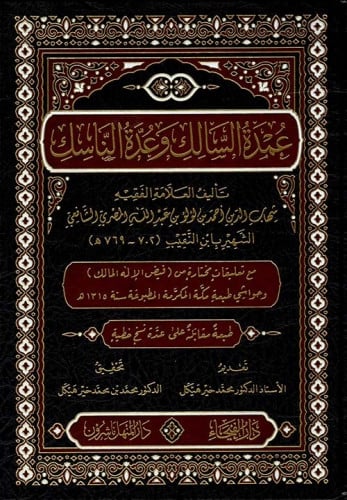 عُمْدَةُ السَّالِكِ وَعُدَّةُ النَّاسِكِ
تأليف العلامة الفقيه
شهاب الدين أحمد بن لؤلؤ بن عبد الله المصري الشافعي
الشهير بابن النقيب (٧٠٢ - ٧٦٩ هـ)
مع تعليقات مختارة من (فيض الإله المالك)
وحواشي طبعة مكة المكرمة المطبوعة سنة ١٣١٥ هـ
طبعة مقابلة على عدة نسخ خطية
تقديم
الأستاذ الدكتور محمد خير هيكل
تحقيق
الدكتور محمد بن محمد خير هيكل
دار الفيحاء
دار المنهل ناشرون